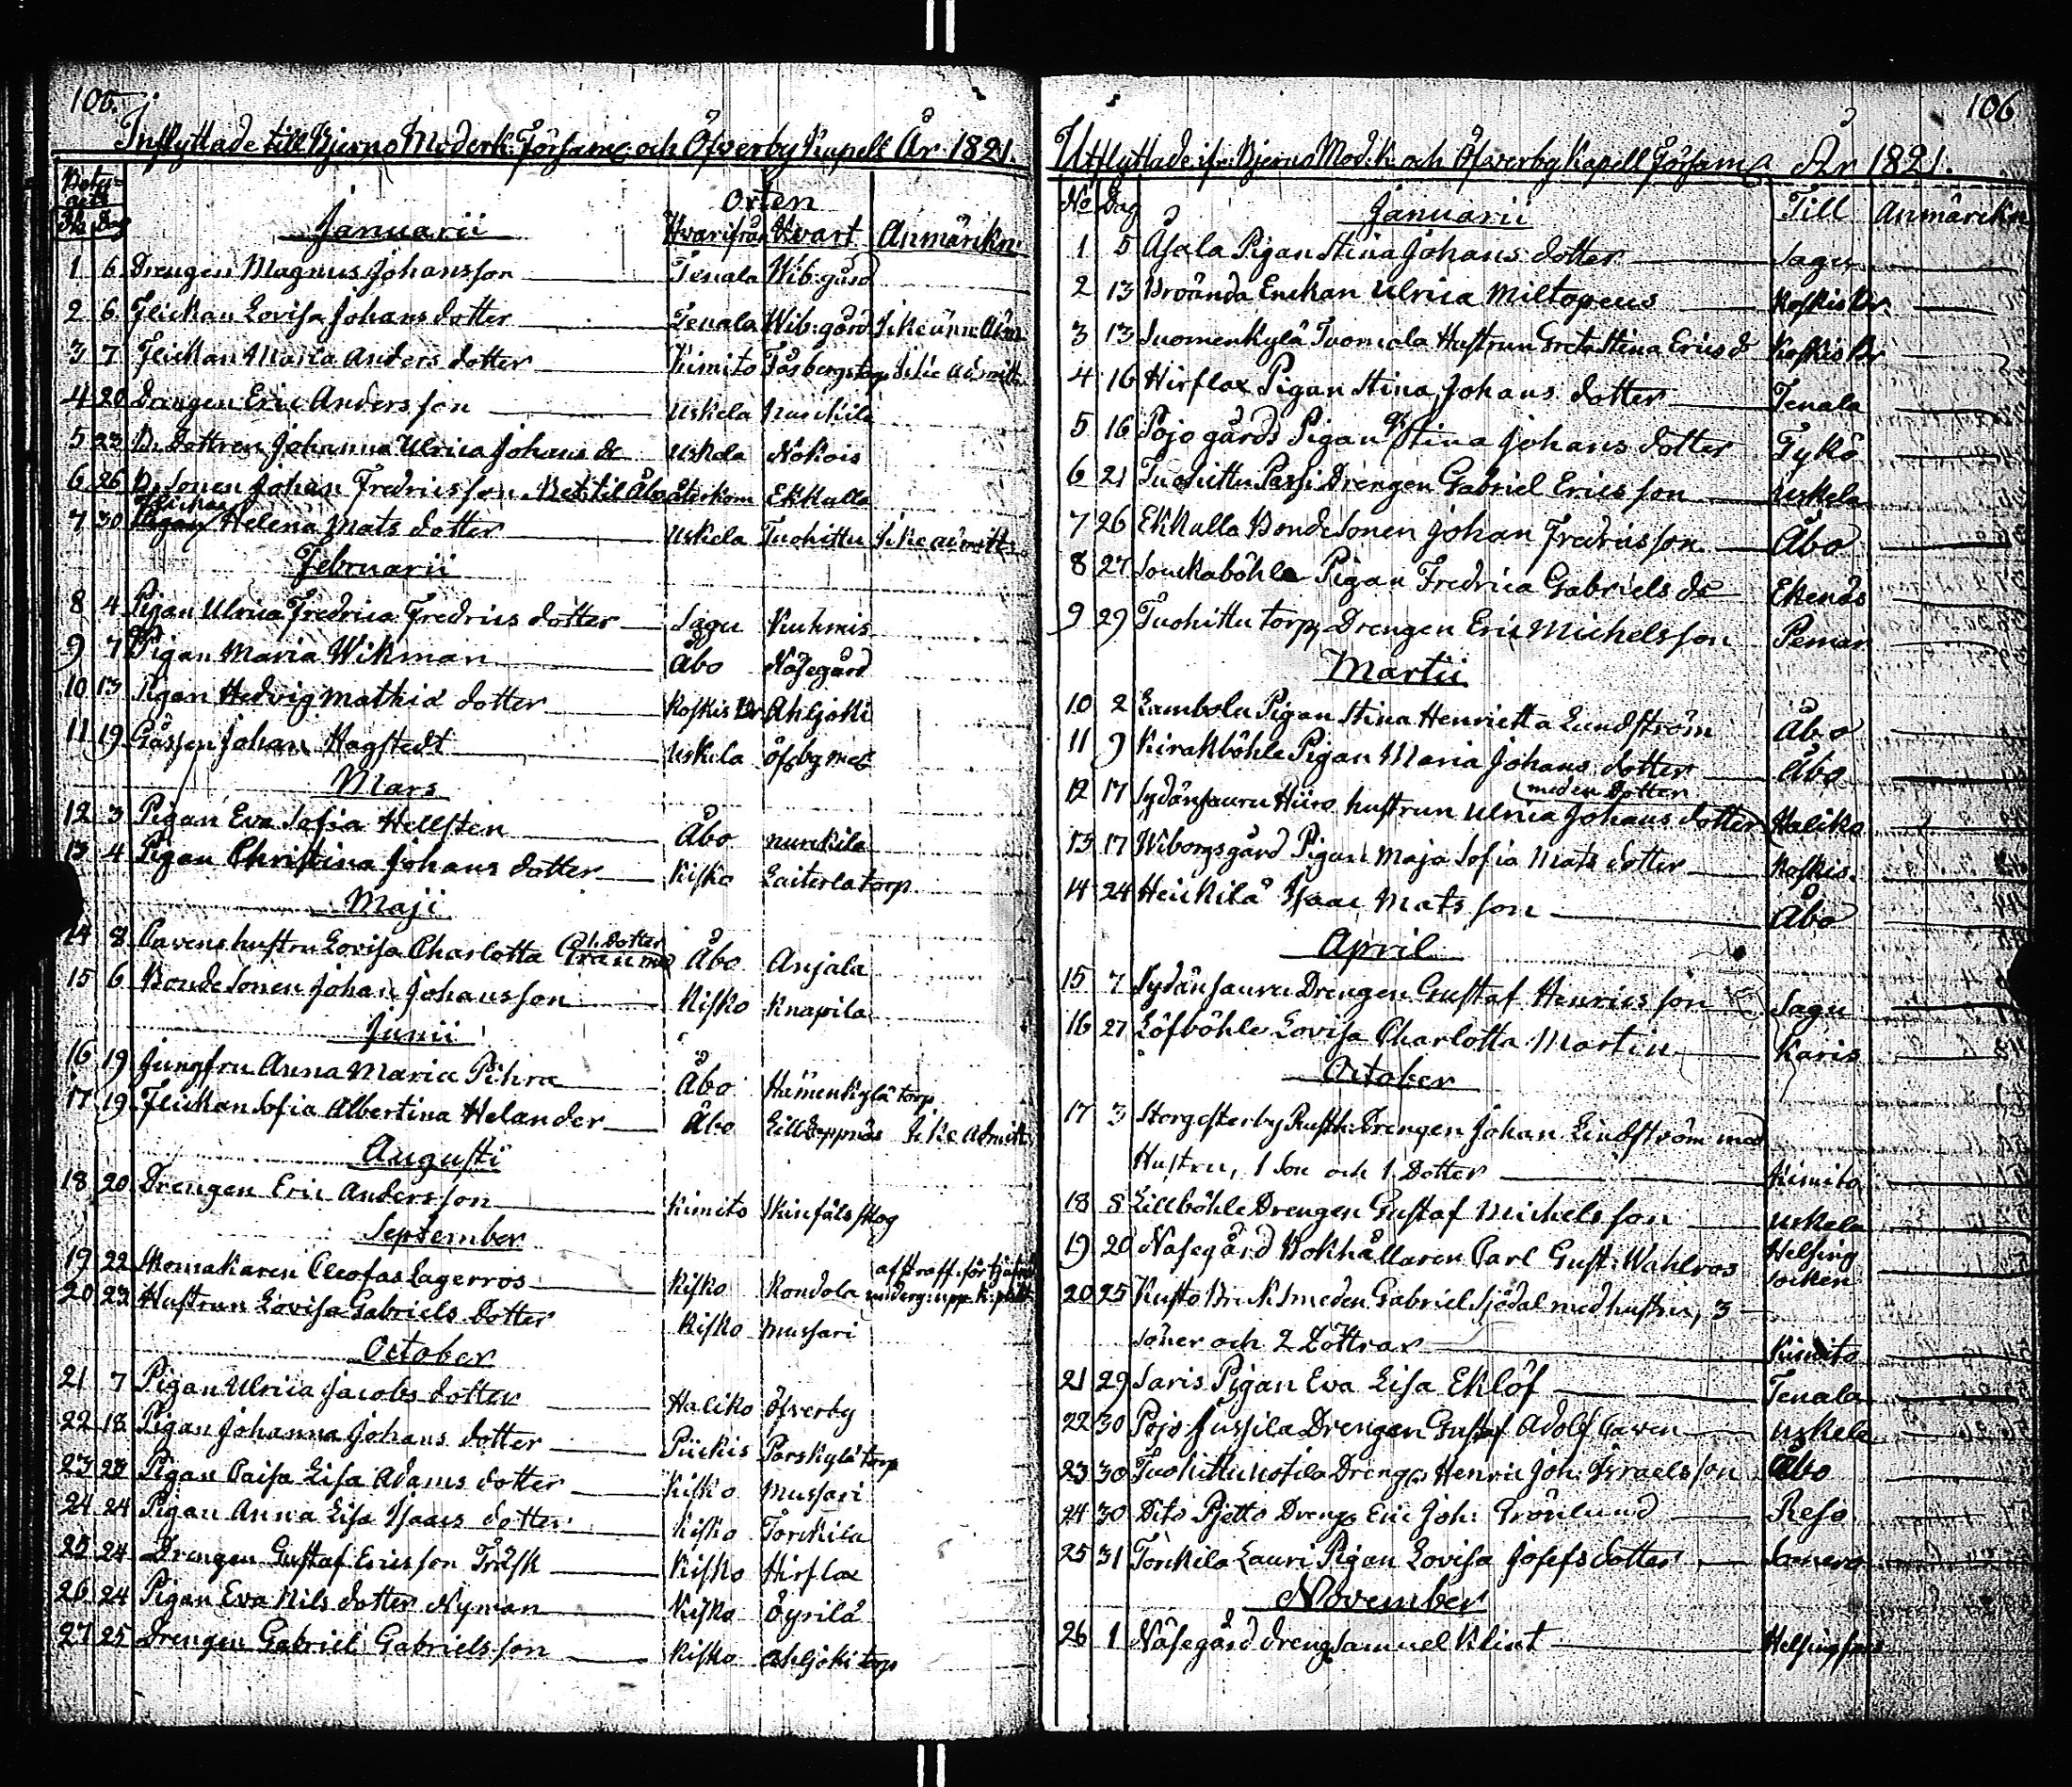 105.
Inflyttade till Bjerno Moderk: Församl: och Öfverby Kapell År 1821.
Betygets Orten
No Dag Januarii Hvarifrån Hvart Anmärkn:
1 6 Drengen Magnus Johansson Tenala Wib:gård
2 6 Flickan Lovisa Johans dotter Tenala Wib:gård Icke ännu Adm
3 7 Flickan Maria Anders dotter Kimito Icke Admitt:
4 20 Drengen Eric Andersson Uskela
5 23 B. Dottren Johanna Ulrica Johans dr Uskela Nokois
6 26 B. Sonen Johan Fredricsson Bet: til Åbo återkom Ekkulla
Flickan
7 30 Pigan Helena Mats dotter Uskela Tuohittu Icke admitt:
Februarii
8 4 Pigan Ulrica Fredrica Fredrics dotter Sagu Kuhmis
9 7 Pigan Maria Wikman Åbo Näsegård
10 13 Pigan Hedvig Mathiæ dotter Koskis Br Ahljoki
11 19 Gossen Johan Hagstedt Uskela
Mars
12 3 Pigan Eva Sofia Hellsten Åbo
13 4 Pigan Christina Johans dotter Kisko Laiterla torp
Maji
14 8 hustru Lovisa Charlotta Åbo Anjala
15 6 Bonde Sonen Johan Johansson Kisko Knapila
Junii
16 19 Jungfru Anna Maria Pihra Åbo Hämenkylä torp
17 19 Flickan Sofia Albertina Helander Åbo Icke Admitt:
Augusti
18 20 Drengen Eric Andersson Kimito
September
19 22 Skomakaren Cleofas Lagerros Kisko Kondola
20 23 Hustrun Lovisa Gabriels Dotter Kisko Mussari
October
21 7 Pigan Ulrica Jacobs dotter Haliko Öfverby
22 18 Pigan Johanna Johans dotter Piickis Parskylä torp
23 23 Pigan Caisa Lisa Adams dotter Kisko Mussari
24 24 Pigan Anna Lisa Isaacs dotter Kisko Torckila
25 24 Drengen Gustaf Ericsson Träsk Kisko Hirflax
26 24 Pigan Eva Nils dotter Nyman Kisko Öyrilä
27 25 Drengen Gabriel Gabrielsson Kisko Ahljoki torp
106
Utflyttade ifr: Bjerno Mod: K. och Öfwerby Kapell Församl År 1821.
No Dag Januarii Till Anmärkn
1 5 Åsala Pigan Stina Johans dotter Sagu
2 13 Broända Enckan Ulrica Miltopeus Koskis Br.
3 13 Suomenkylä Tuomala Hustrun Greta Stina Erics d Koskis Br
4 16 Hirflax Pigan Stina Johans dotter Tenala
5 16 Pojo gårds Pigan Stina Johans dotter Tykö
6 21 Tuohittu Passi Drengen Gabriel Ericsson Uskela
7 26 Ekkulla Bonde Sonen Johan Fredricsson Åbo
8 27 Souckaböhle Pigan Fredrica Gabriels dr Ekenäs
9 29 Tuohittu torp Drengen Eric Michelsson Pemar
Martii
10 2 Lambola Pigan Stina Henrietta Lundström Åbo
11 9 Kirakböhle Pigan Maria Johans dotter Åbo
med en Dotter
12 17 Sydänsauru Hiiro hustrun Ulrica Johans dotter Haliko
13 17 Wiborgsgård Pigan Maja Sofia Mats dotter Koskis.
14 24 Heickilä Isaac Matsson Åbo
April
15 7 Sydänsauru Drengen Gustaf Henricsson Sagu
16 27 Löfböhle Lovisa Charlotta Martin Karis
October
17 3 Storgesterby Rusth: Drengen Johan Lindström med
Hustru, 1 Son och 1 Dotter Kimito
18 8 Lillböhle Drengen Gustaf Michelsson Uskela
19 20 Näsegård Bokhållaren Carl Gust: Wahlros Helsing socken
20 25 Kusto Br. K. Smeden Gabriel Sjödal med hustru, 3
söner och 2 Döttrar Kimito
21 29 Saris Pigan Eva Lisa Eklöf Tenala
22 30 Pojo Jussila Drengen Gustaf Adolf Caven Uskela
23 30 Tuohittu Drengen Henric Joh: Israelsson Åbo
24 30 Dito Pjetto Dreng Eric Joh: Grönlund Reso
25 31 Törckila Lauri Pigan Lovisa Josefs dotter Somero
November
26 1 Näsegård dreng Samuel Klint Helsingfors